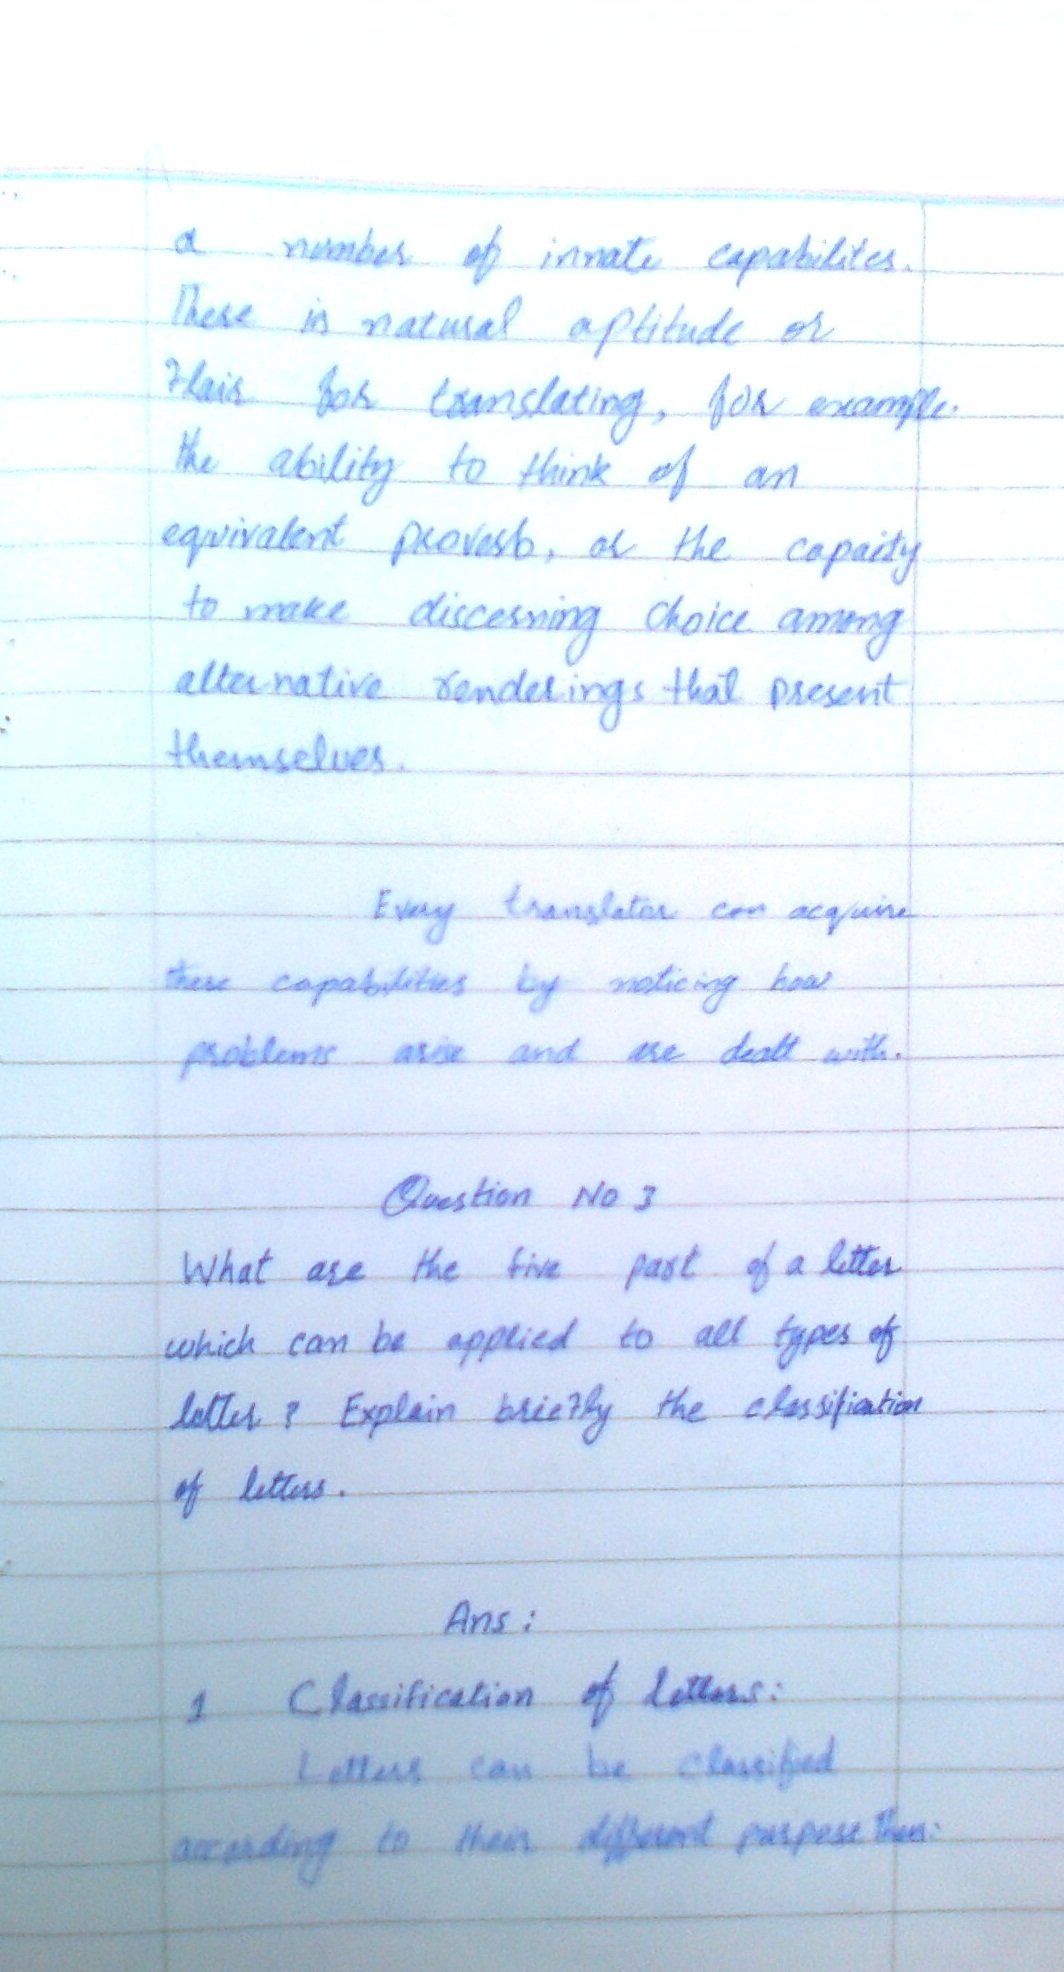 a number of innate capabilites.
There is natural aptitude or
flair for translating, for example.
the ability to think of an
equivalent proverb, or the capaity
to make discerning choice among
alternative renderings that present
themselves.
Every translator can acquire
these capabilities by noticing how
problems arise and are dealt with.
Question No 3
What are the five part of a letter
which can be applied to all types of
letter ? Explain briefly the classification
of letters.
Ans :
1 Classification of letters:
Letters can be classified
according to their different purpose then: